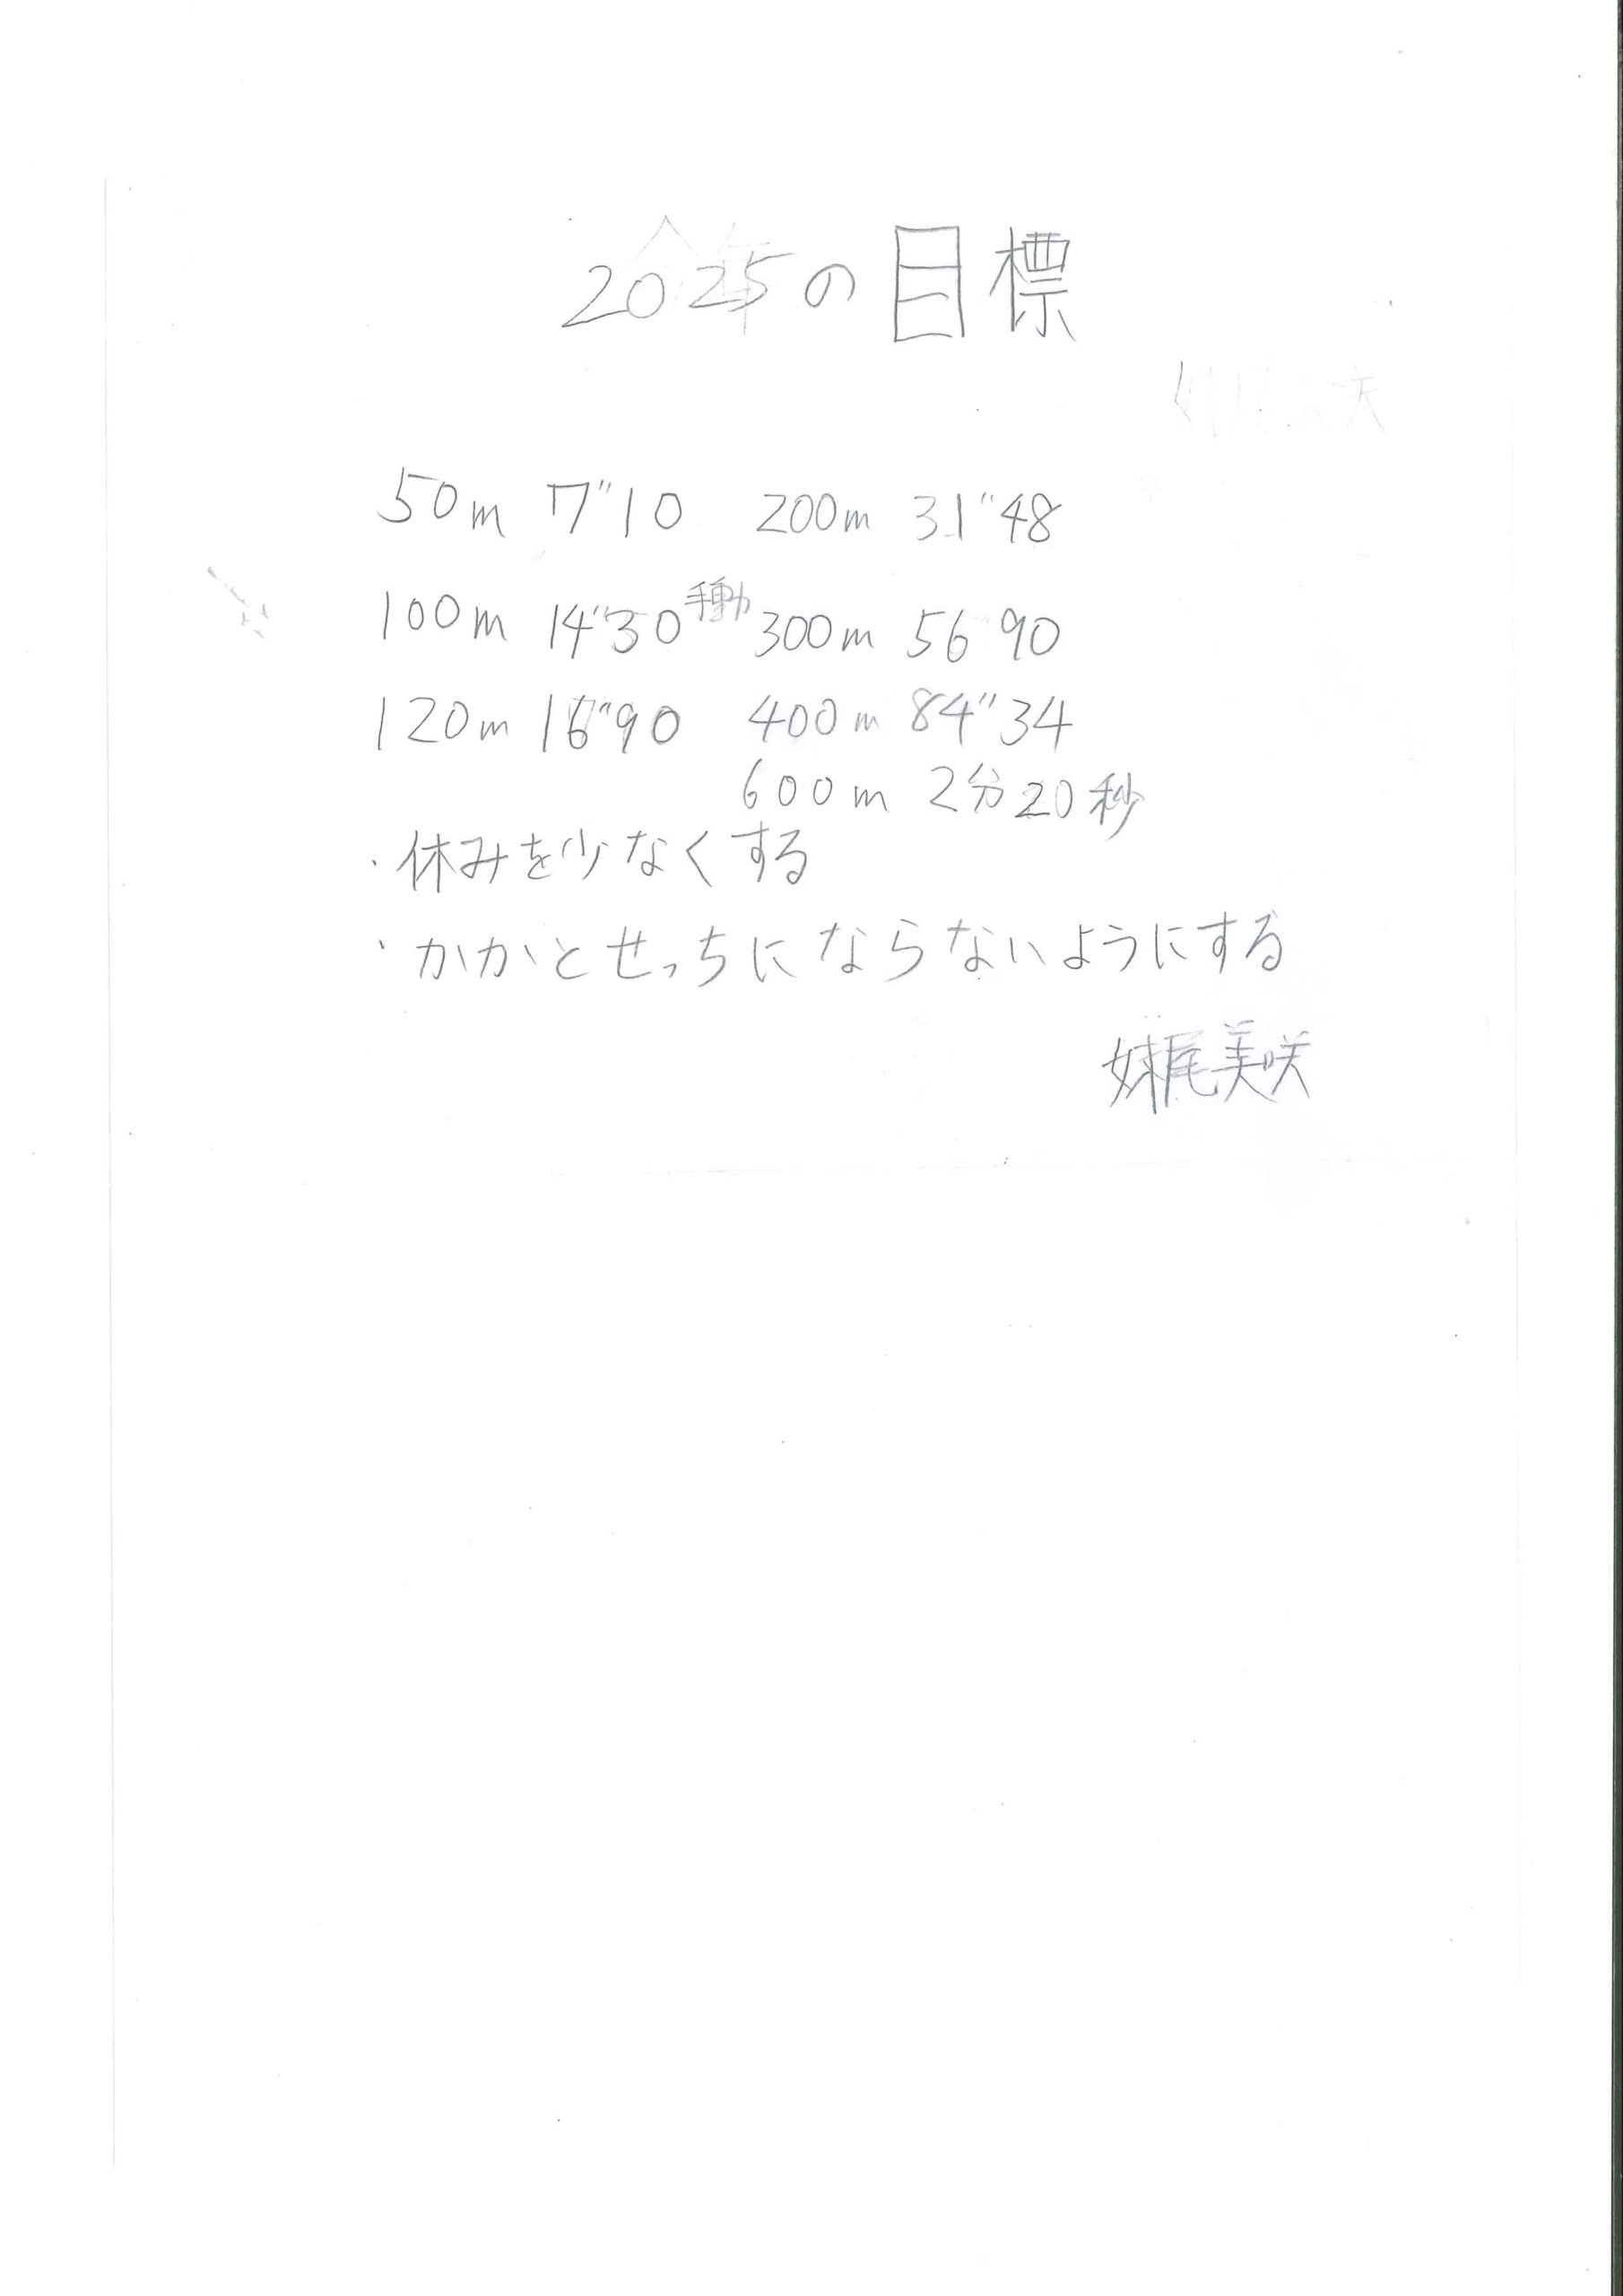 2025の目標
50m 7"10 200m 31"48
100m 14"30 手動 300m 56"90
120m 16"90 400m 84"34
600m 2分20秒
・休みを少なくする
・かかとせっちにならないようにする
妹尾美咲